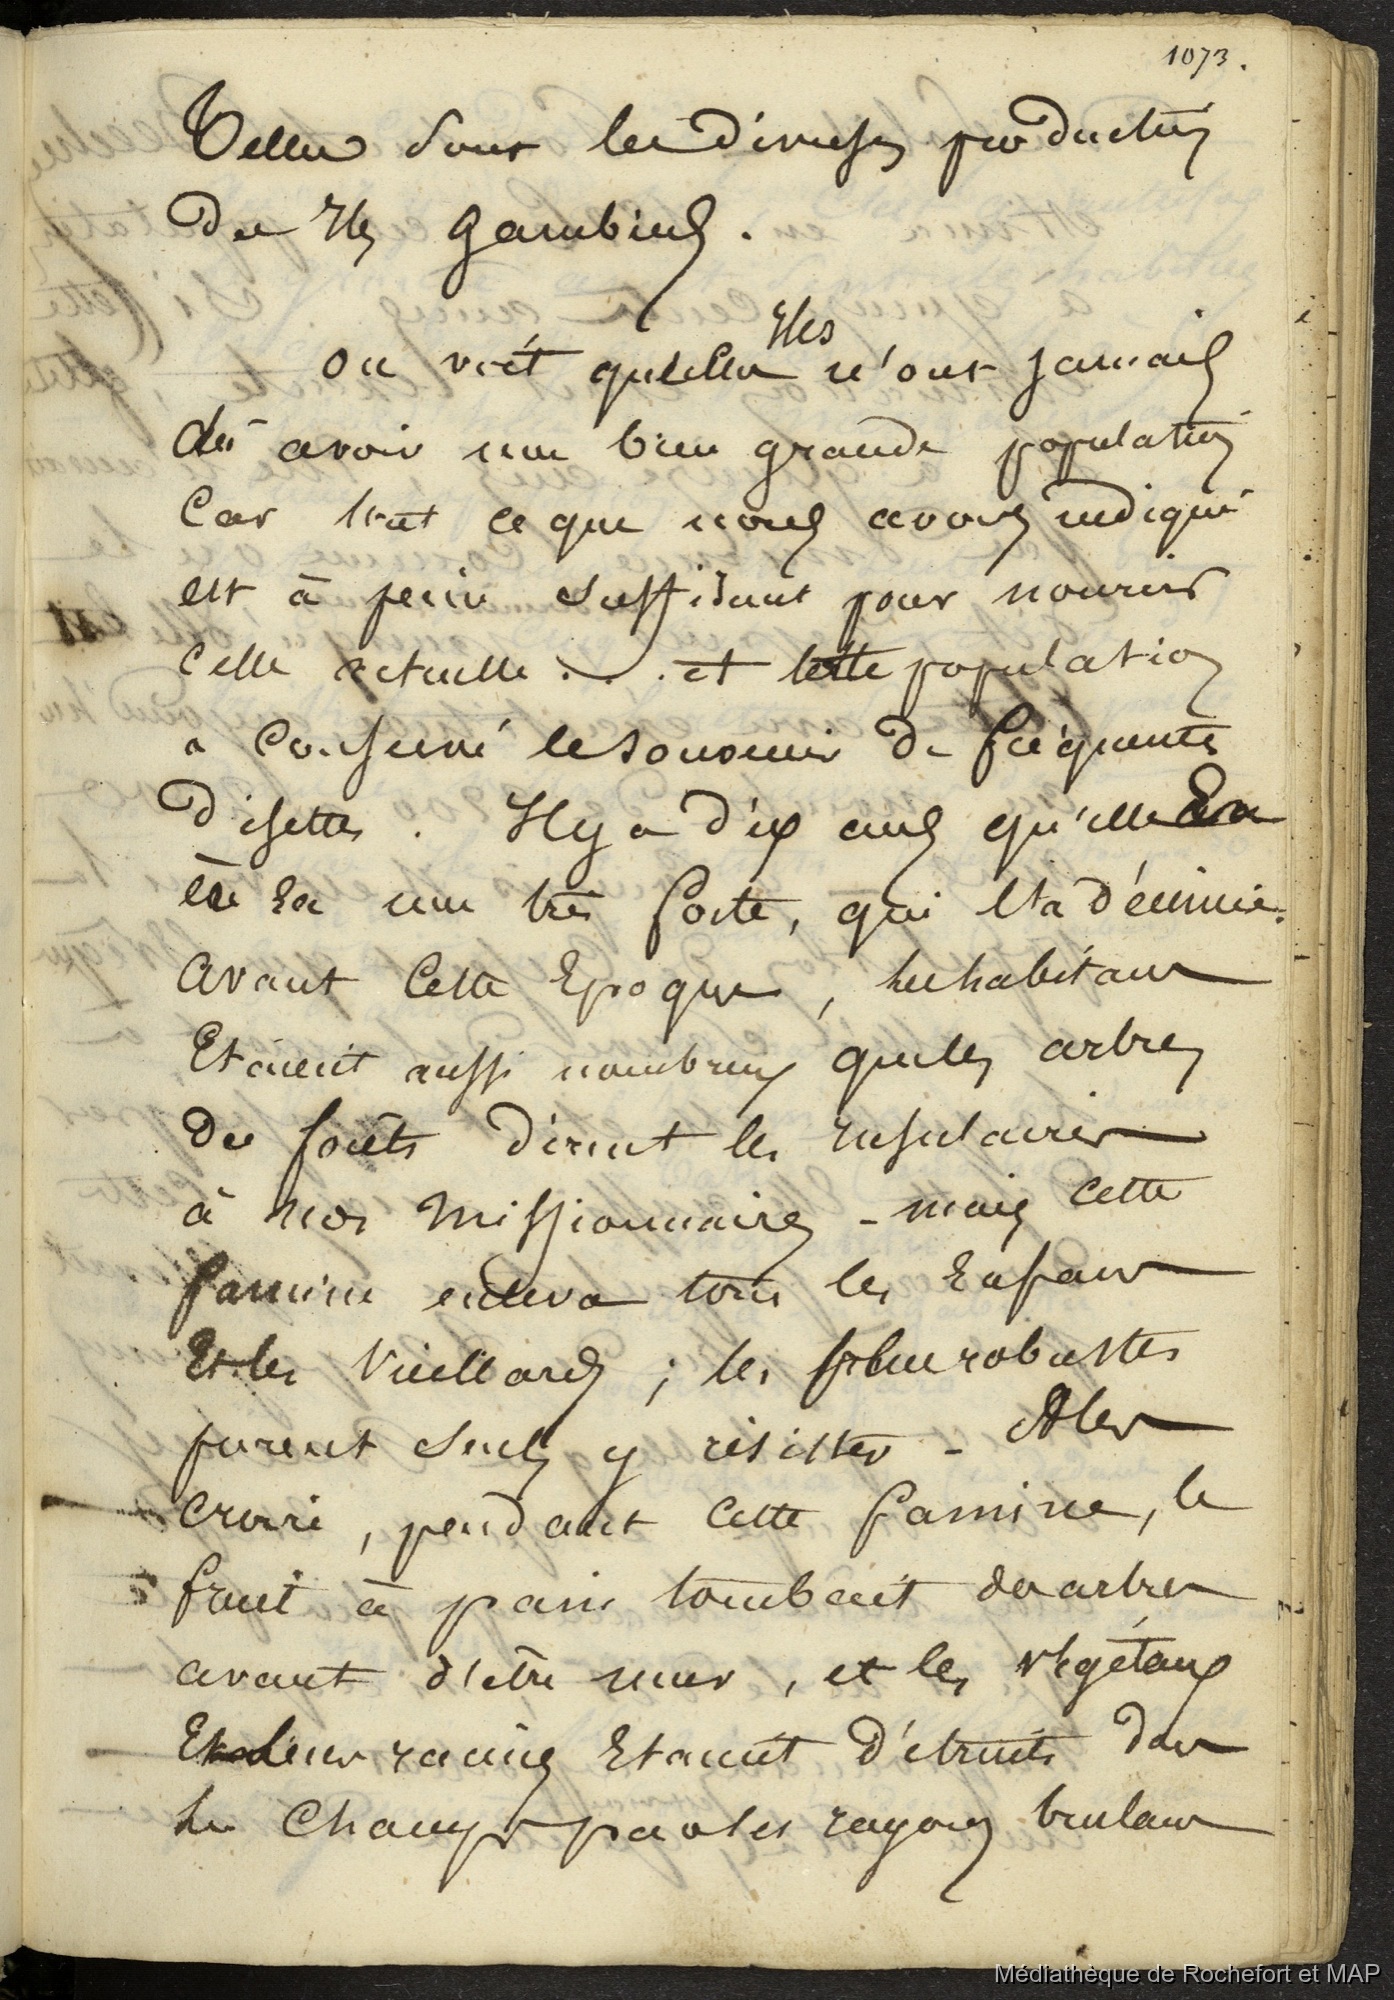 1073.
Telles sont les diverses productions
des Iles Gambiers.
Iles
on voit qu'elles n'ont jamais
dû avoir une bien grande population
Car tout ce que nous avons indiqué
est à peine suffisant pour nourrir
celle actuelle . . . et cette population
a conservé le souvenir de fréquentes
disettes. Il y a dix ans qu'elle en a
eu une très forte, qui l'a décimée.
Avant Cette Epoque, les habitans
Etaient aussi nombreux que les arbres
des forêts dirent les insulaires
à nos missionnaires - mais cette
famine enleva tous les Enfans
Et les Vieillards ; les plus robustes
purent seuls y résister - A les
croire, pendant cette famine, le
fruit à pain tombait des arbres
avant d'etre mur, et les végétaux
Et leurs racines Etaient détruits dans
les Champs par les rayons brulans
Médiathèque de Rochefort et MAP